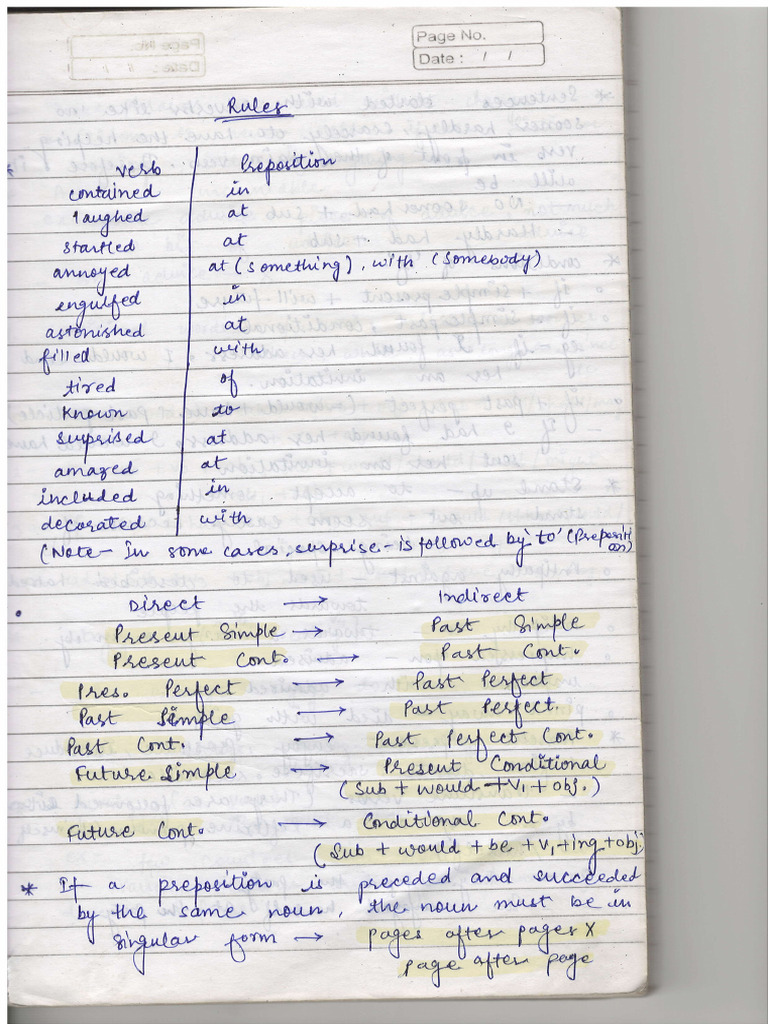 Page No.
Date : / /
Rules
verb | Preposition
contained | in
laughed | at
startled | at
annoyed | at (something), with (somebody)
engulfed | in
astonished | at
filled | with
tired | of
known | to
surprised | at
amazed | at
included | in
decorated | with
(Note - In some cases, surprise - is followed by 'to' (Preposition)
Direct → Indirect
Present Simple → Past Simple
Present Cont. → Past Cont.
Pres. Perfect → Past Perfect
Past Simple → Past Perfect.
Past Cont. → Past Perfect Cont.
Future Simple → Present Conditional
(Sub + would + V1 + obj.)
Future Cont. → Conditional Cont.
(Sub + would + be + V1 + ing + obj.)
* If a preposition is preceded and succeeded
by the same noun, the noun must be in
singular form → pages after pages X
page after page